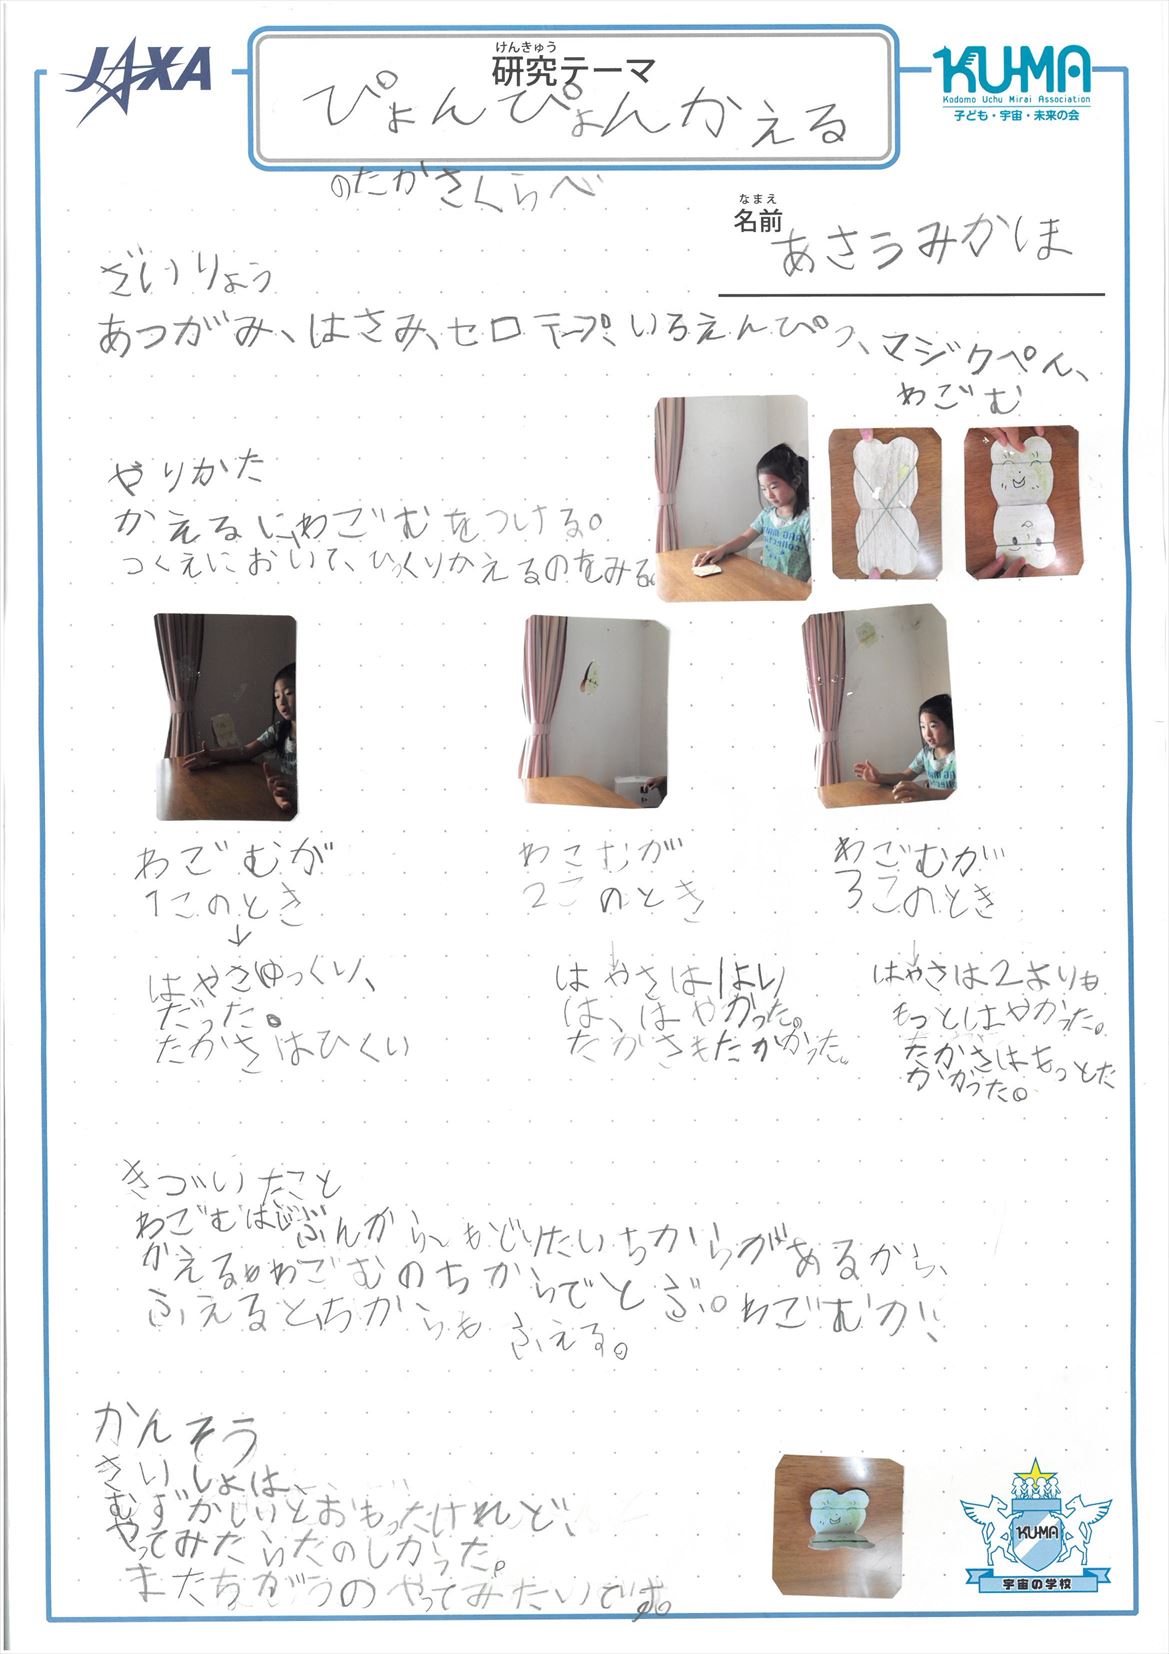 JAXA
けんきゅう
研究テーマ
KU-MA
Kodomo Uchu Mirai Association
子ども・宇宙・未来の会
ぴょんぴょんかえる
のたかさくらべ
なまえ
名前
あさうみかほ
ざいりょう
あつがみ、はさみ、セロテープ、いろえんぴつ、マジクペん、
わごむ
やりかた
かえるにわごむをつける。
つくえにおいて、ひっくりかえるのをみる。
わごむが
1このとき
↓
はやさゆっくり、
だった。
たかさはひくい
わごむが
2このとき
↓
はやさは1より
は、はやかった。
たかさもたかかった。
わごむが
3このとき
↓
はやさは2よりも
もっとはやかった。
たかさはもっとた
かかった。
きづいたこと
わごむはじぶんから、もどりたいちからがあるから、
かえるがわごむのちからでとぶ。わごむが、
ふえるとちからもふえる。
かんそう
さいしょは、
むずかしいとおもったけれど、
やってみたらたのしかった。
またちがうのやってみたいです。
KU-MA
宇宙の学校